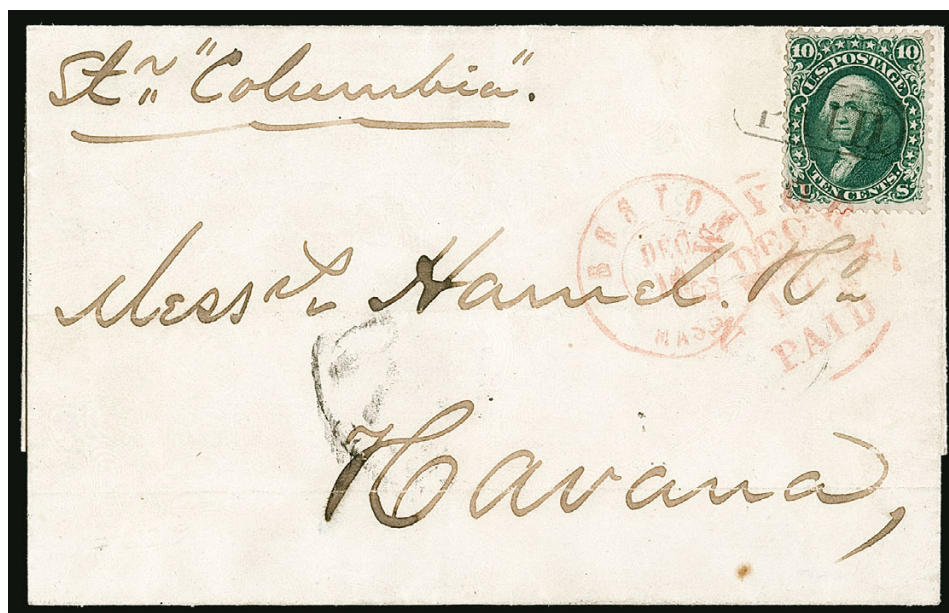 Str,, "Columbia".
10 10
U.S. POSTAGE
TEN CENTS.
U S
PAID
BOSTON
DEC
MASS
DEC
PAID
Mess
Havana,